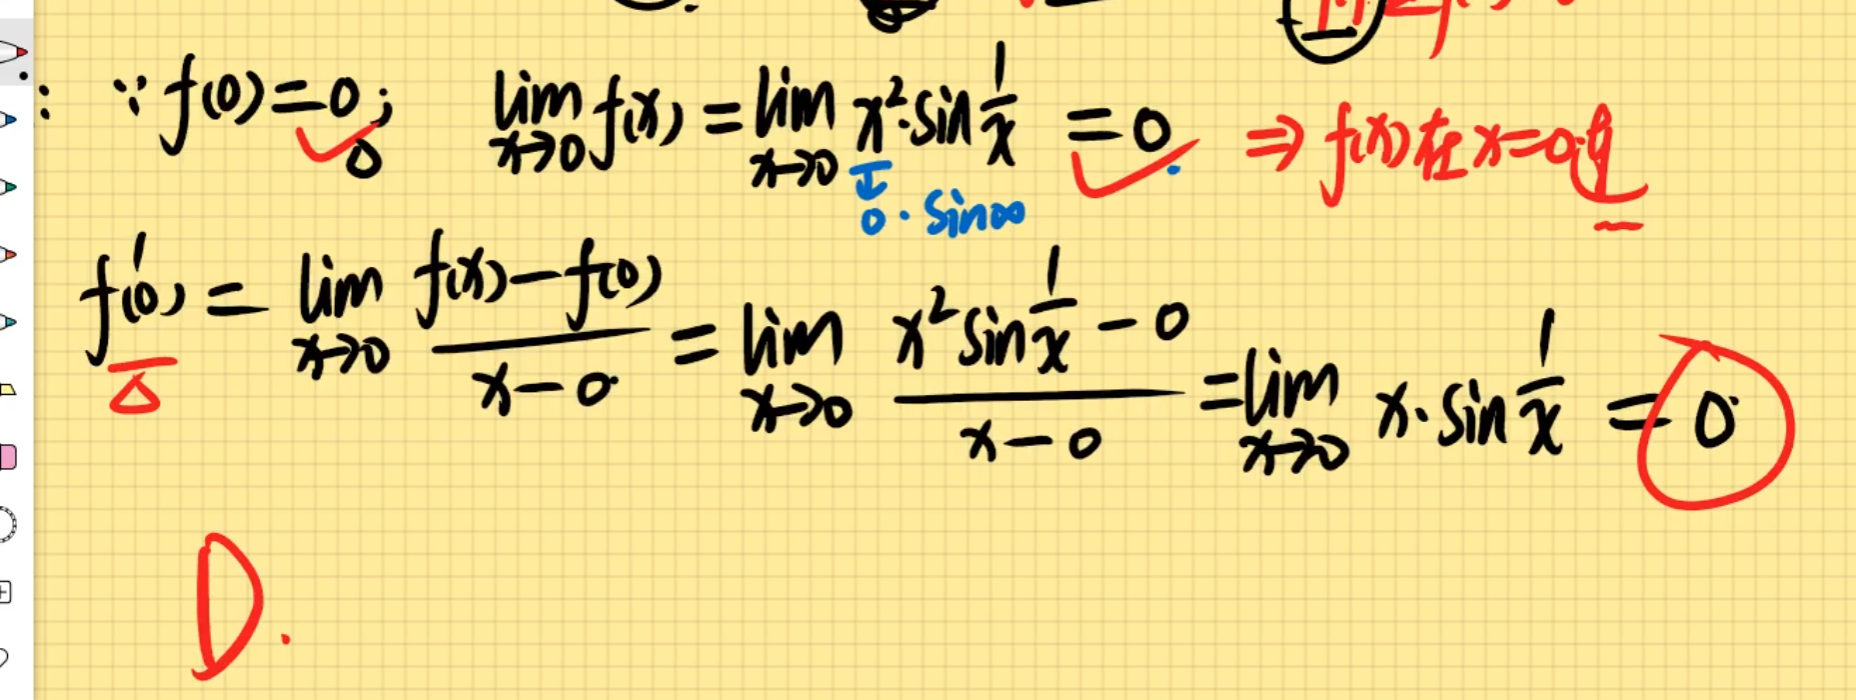 : ∵ f(0)=0; lim x→0 f(x) = lim x→0 x²·sin 1/x = 0 ⇒ f(x)在x=0
0
0 · sin∞
f'(0) = lim x→0 (f(x)-f(0))/(x-0) = lim x→0 (x² sin 1/x - 0)/(x-0) = lim x→0 x·sin 1/x = 0
D.